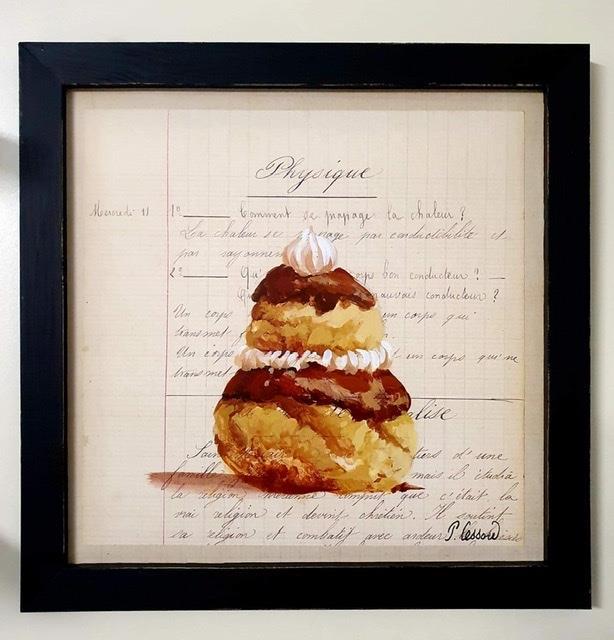 Physique
Mercredi 11 1º Comment se propage la chaleur ?
La chaleur se propage par conductibilité et
par rayonnem
2º Qu' corps bon conducteur ?
mauvais conducteur ?
Un corps un corps qui
transmet
Un corps un corps qui ne
transmet
l'Eglise
Sain tiers d'une
famille mais il étudia
la religion que c'était la
vrai religion et devint chrétien. Il soutint
sa religion et combatif avec ardeur
P. Lessow